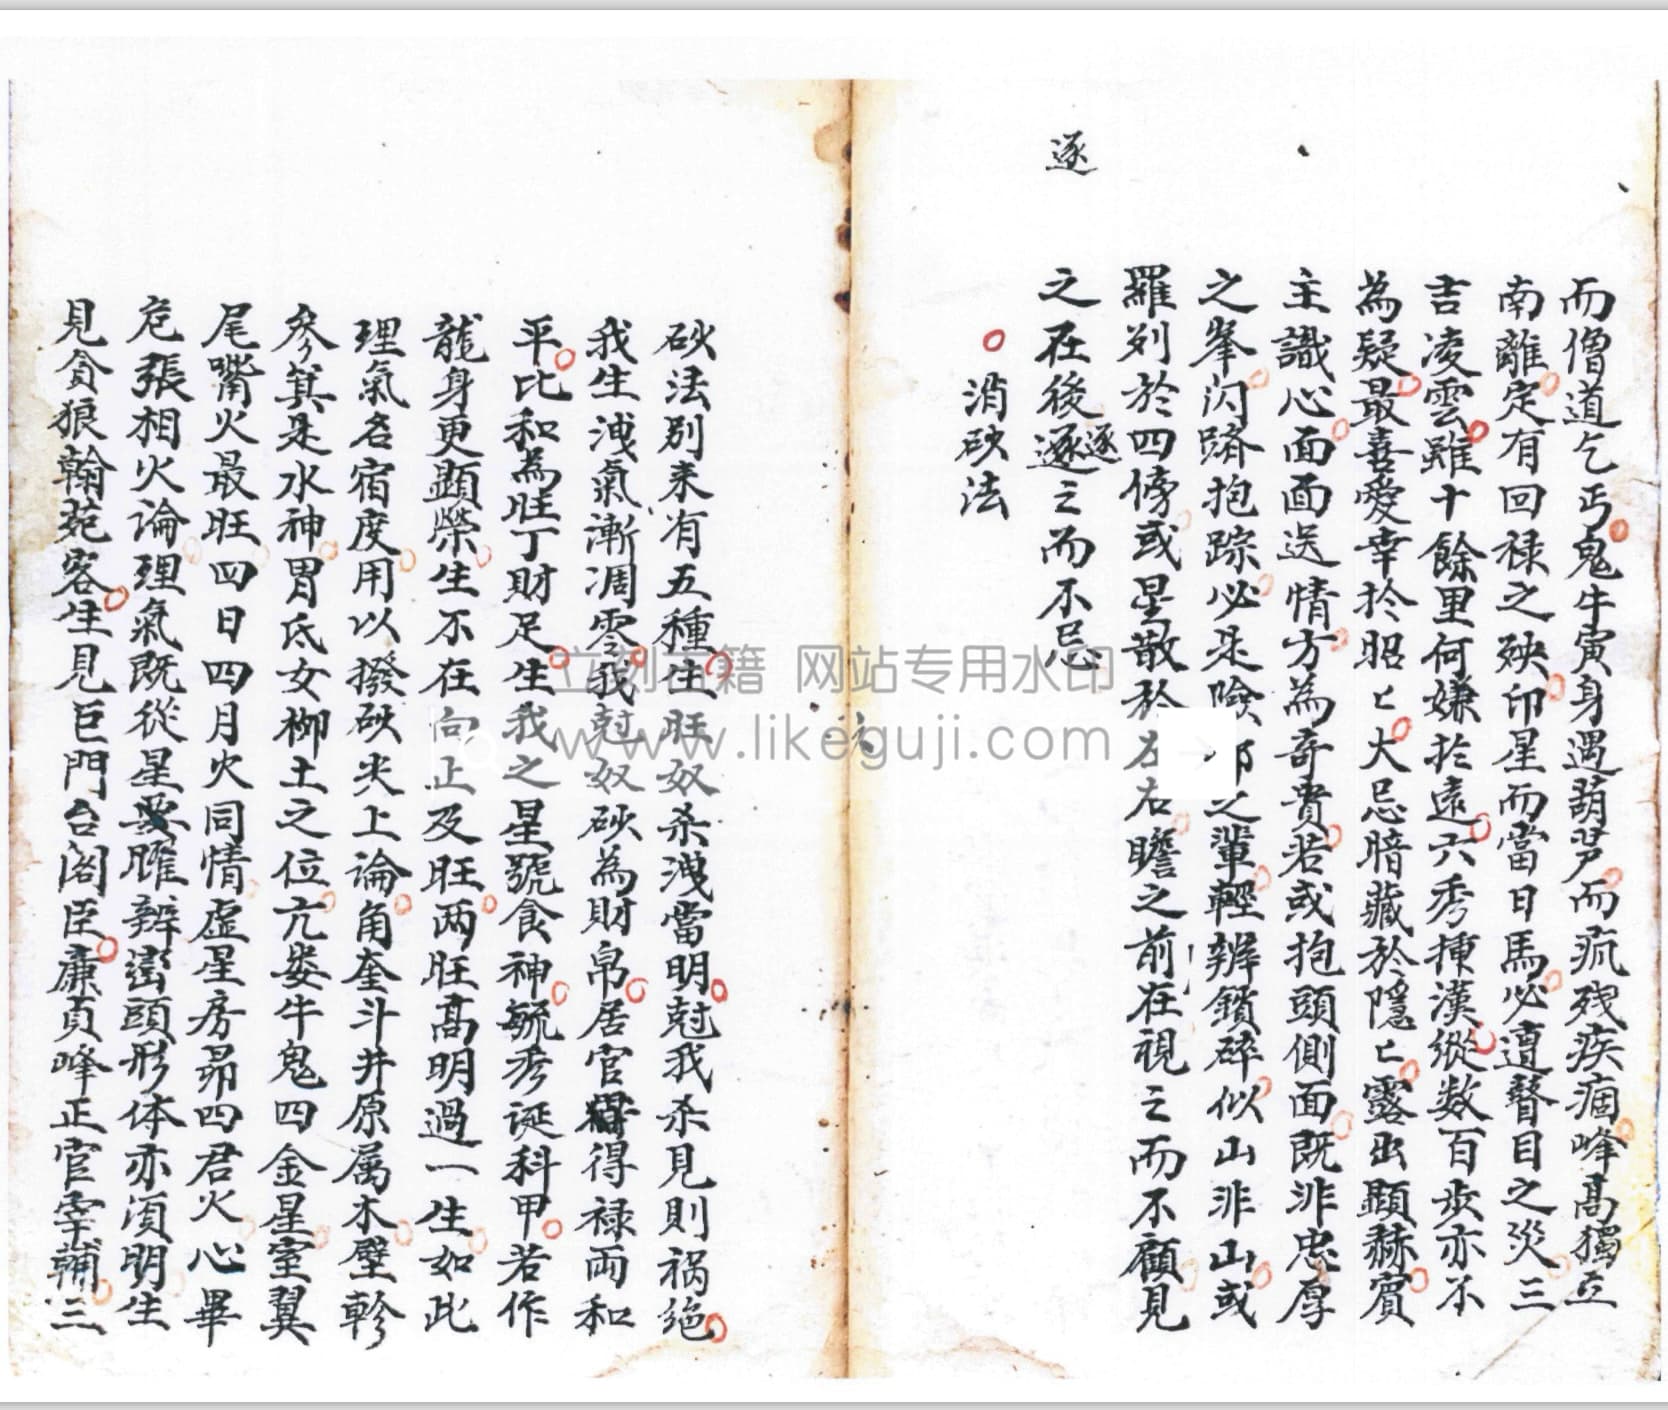 逐
而僧道乞丐鬼牛寅身遇葫芦而疯残疾痼峰高獨立
南離定有回禄之殃印星而當日馬必遭瞽目之災三
吉凌雲雖十餘里何嫌於遠六秀捶漢縱数百步亦不
為疑最喜愛幸扵昭匕大忌暗藏於隱匕露出顯赫賓
主識心面面送情方為奇貴若或抱頭側面既非忠厚
之峯閃躋抱踪必是險 之輩輕辨鎖碎似山非山或
羅列於四傍或星散於左右瞻之前在視之而不顧見
之在後逐逐之而不忌
消砂法
砂法别来有五種生旺奴杀洩當明尅我杀見則禍绝
我生洩氣漸凋零我尅奴砂為財帛居官得禄両和
平比和為旺丁財足生我之星號食神毓秀诞科甲若作
龍身更顯榮生不在向止及旺両旺髙明過一生如此
理氣名宿度用以撥砂尖上論角奎斗井原属木壁軫
參箕是水神胃氐女柳土之位亢婁牛鬼四金星室翼
尾嘴火最旺四日四月火同情虚星房昴四君火心畢
危張相火論理氣既從星曜辨巒頭形体亦須明生
見貪狼翰苑客生見巨門台阁臣廉貞峰正官宰輔三
立刻古籍 网站专用水印
www.likeguji.com